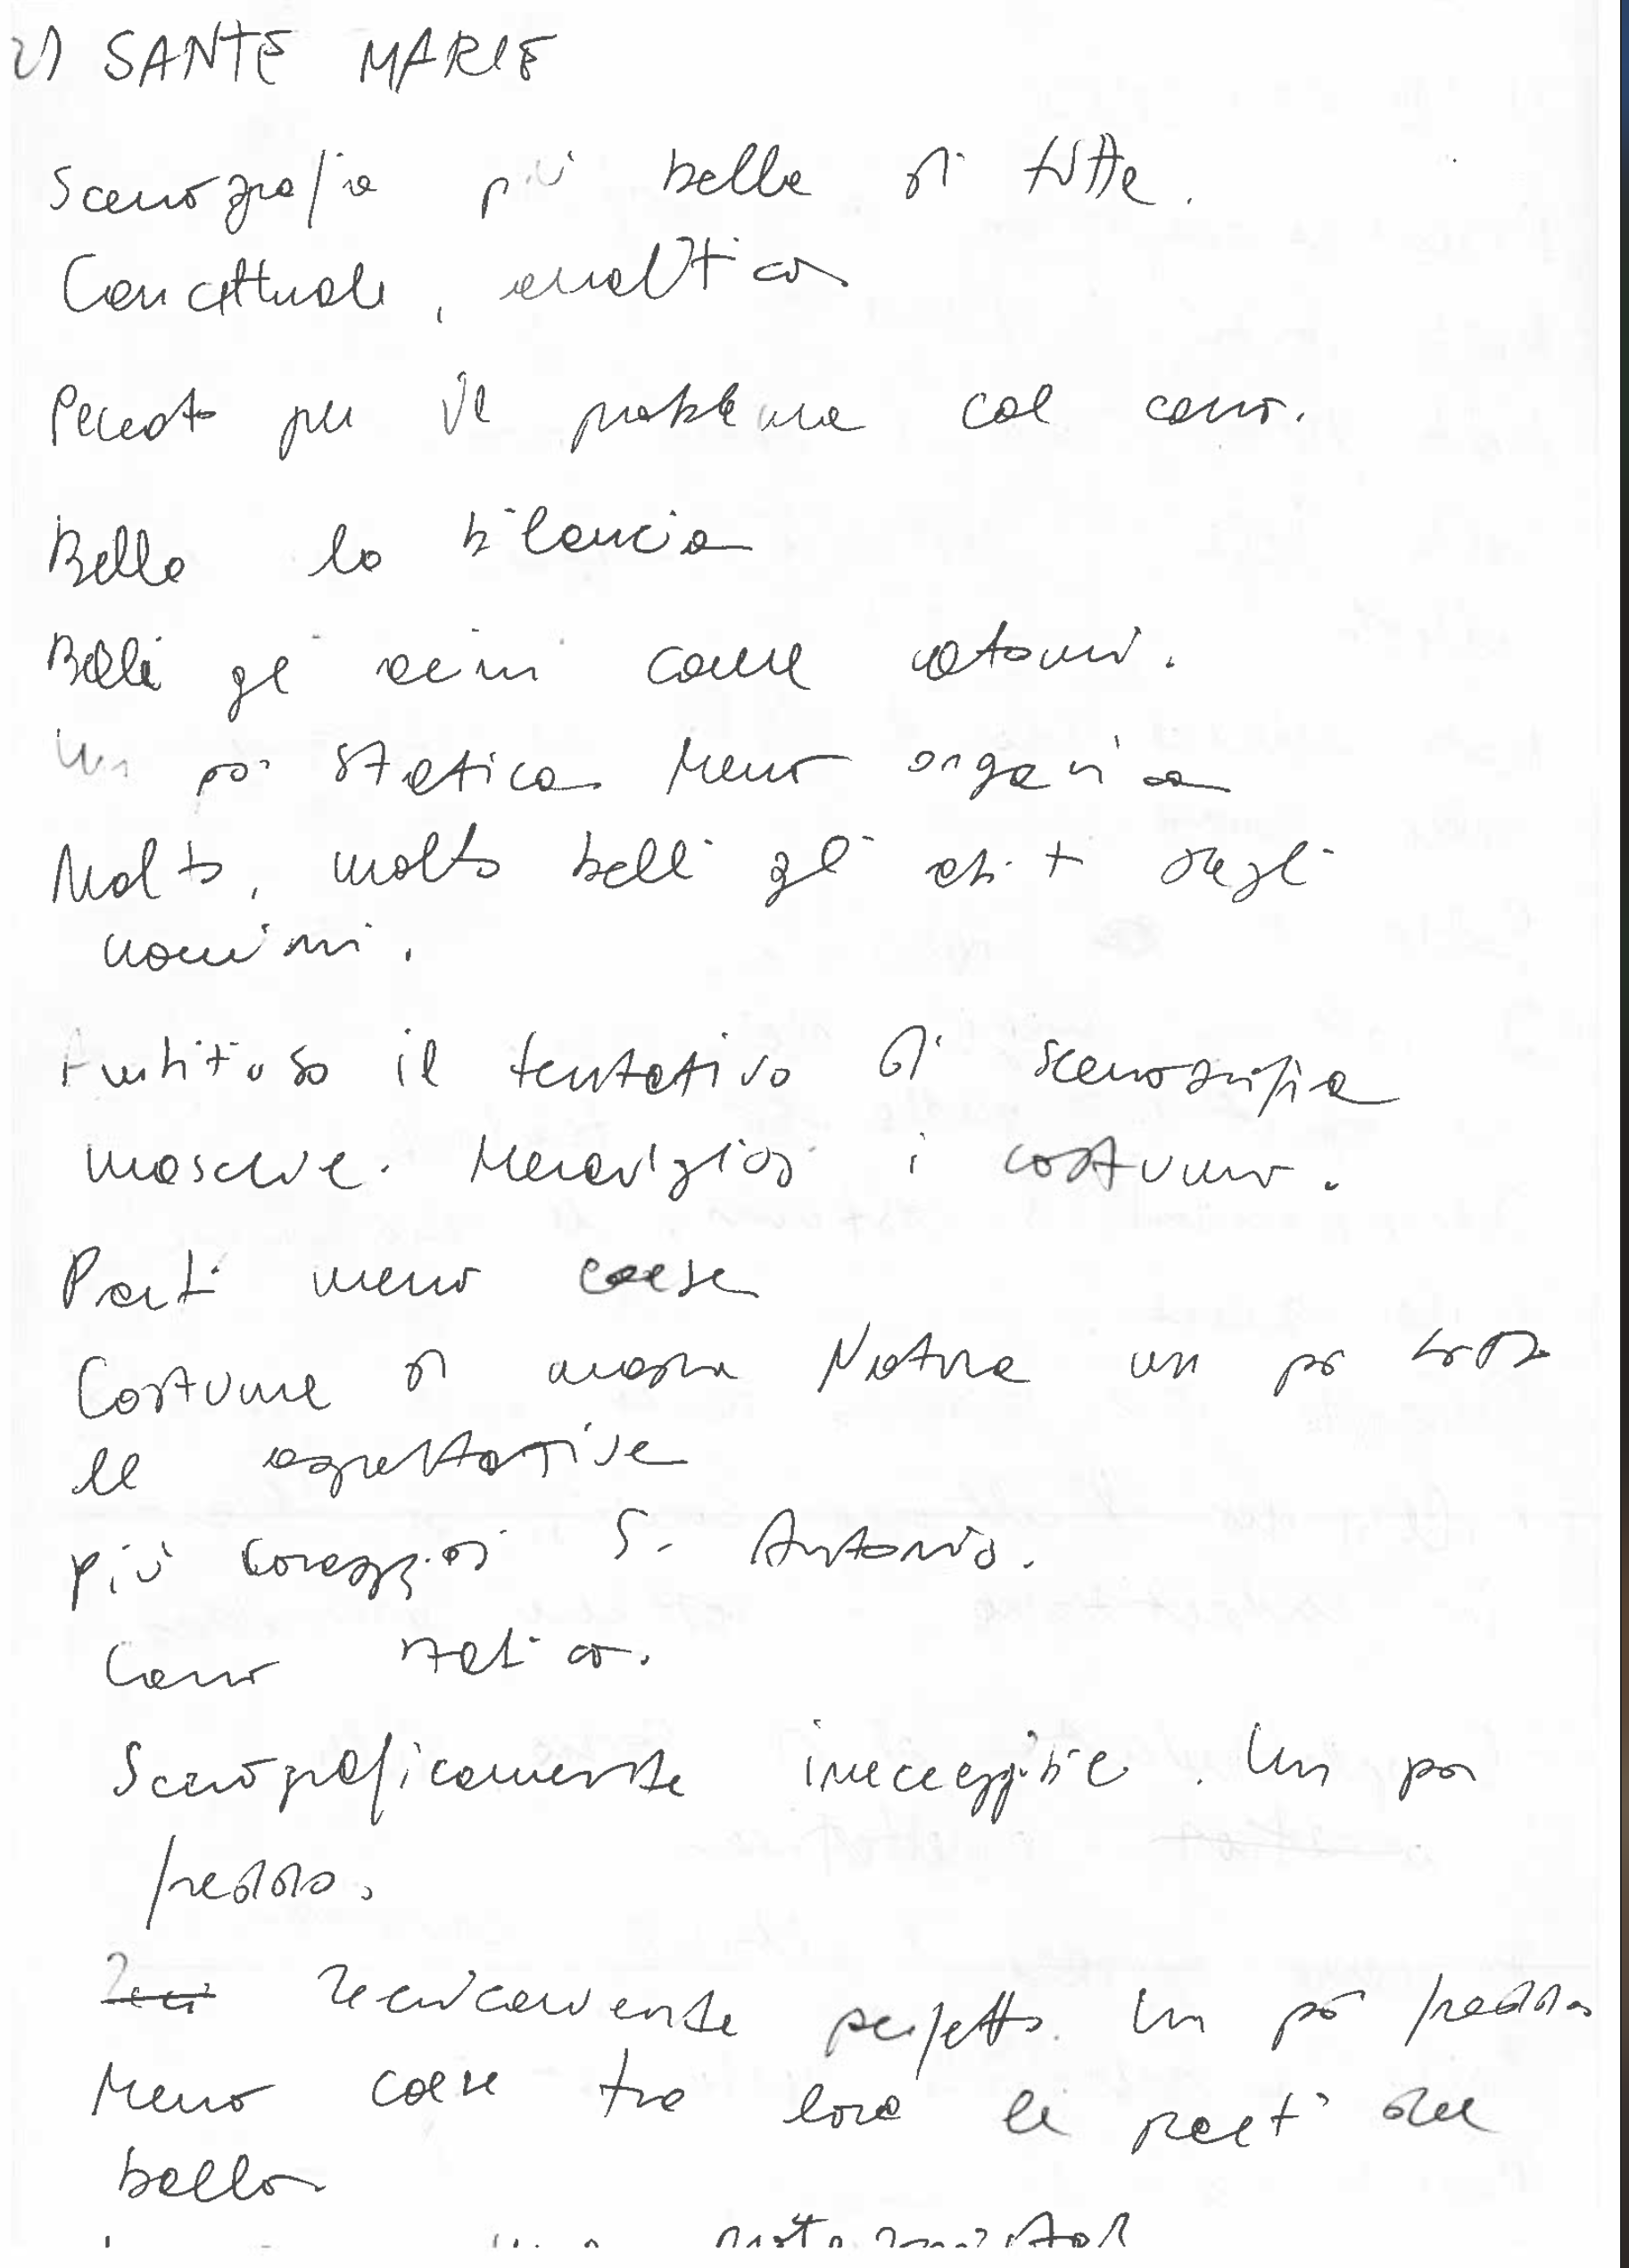 2) SANTE MARIE
Scenografia più bella di tutte.
Concettuale, analitica
Peccato per il problema col carro.
Bella la bilancia
Belli gli acini come atomi.
Un pò statica. Meno organica
Molto, molto belli gli abiti degli
uomini.
Ambitioso il tentativo di scenografia
maschile. Meravigliosi i costumi.
Parti meno coese
Costume di madre Natura un po' sotto
le aspettative
più coraggiosi S. Antonio.
Carro statico.
Scenograficamente ineccepibile. Un po'
freddo.
Tecnicamente perfetto. Un pò freddo
Meno coese tra loro le parti del
ballo